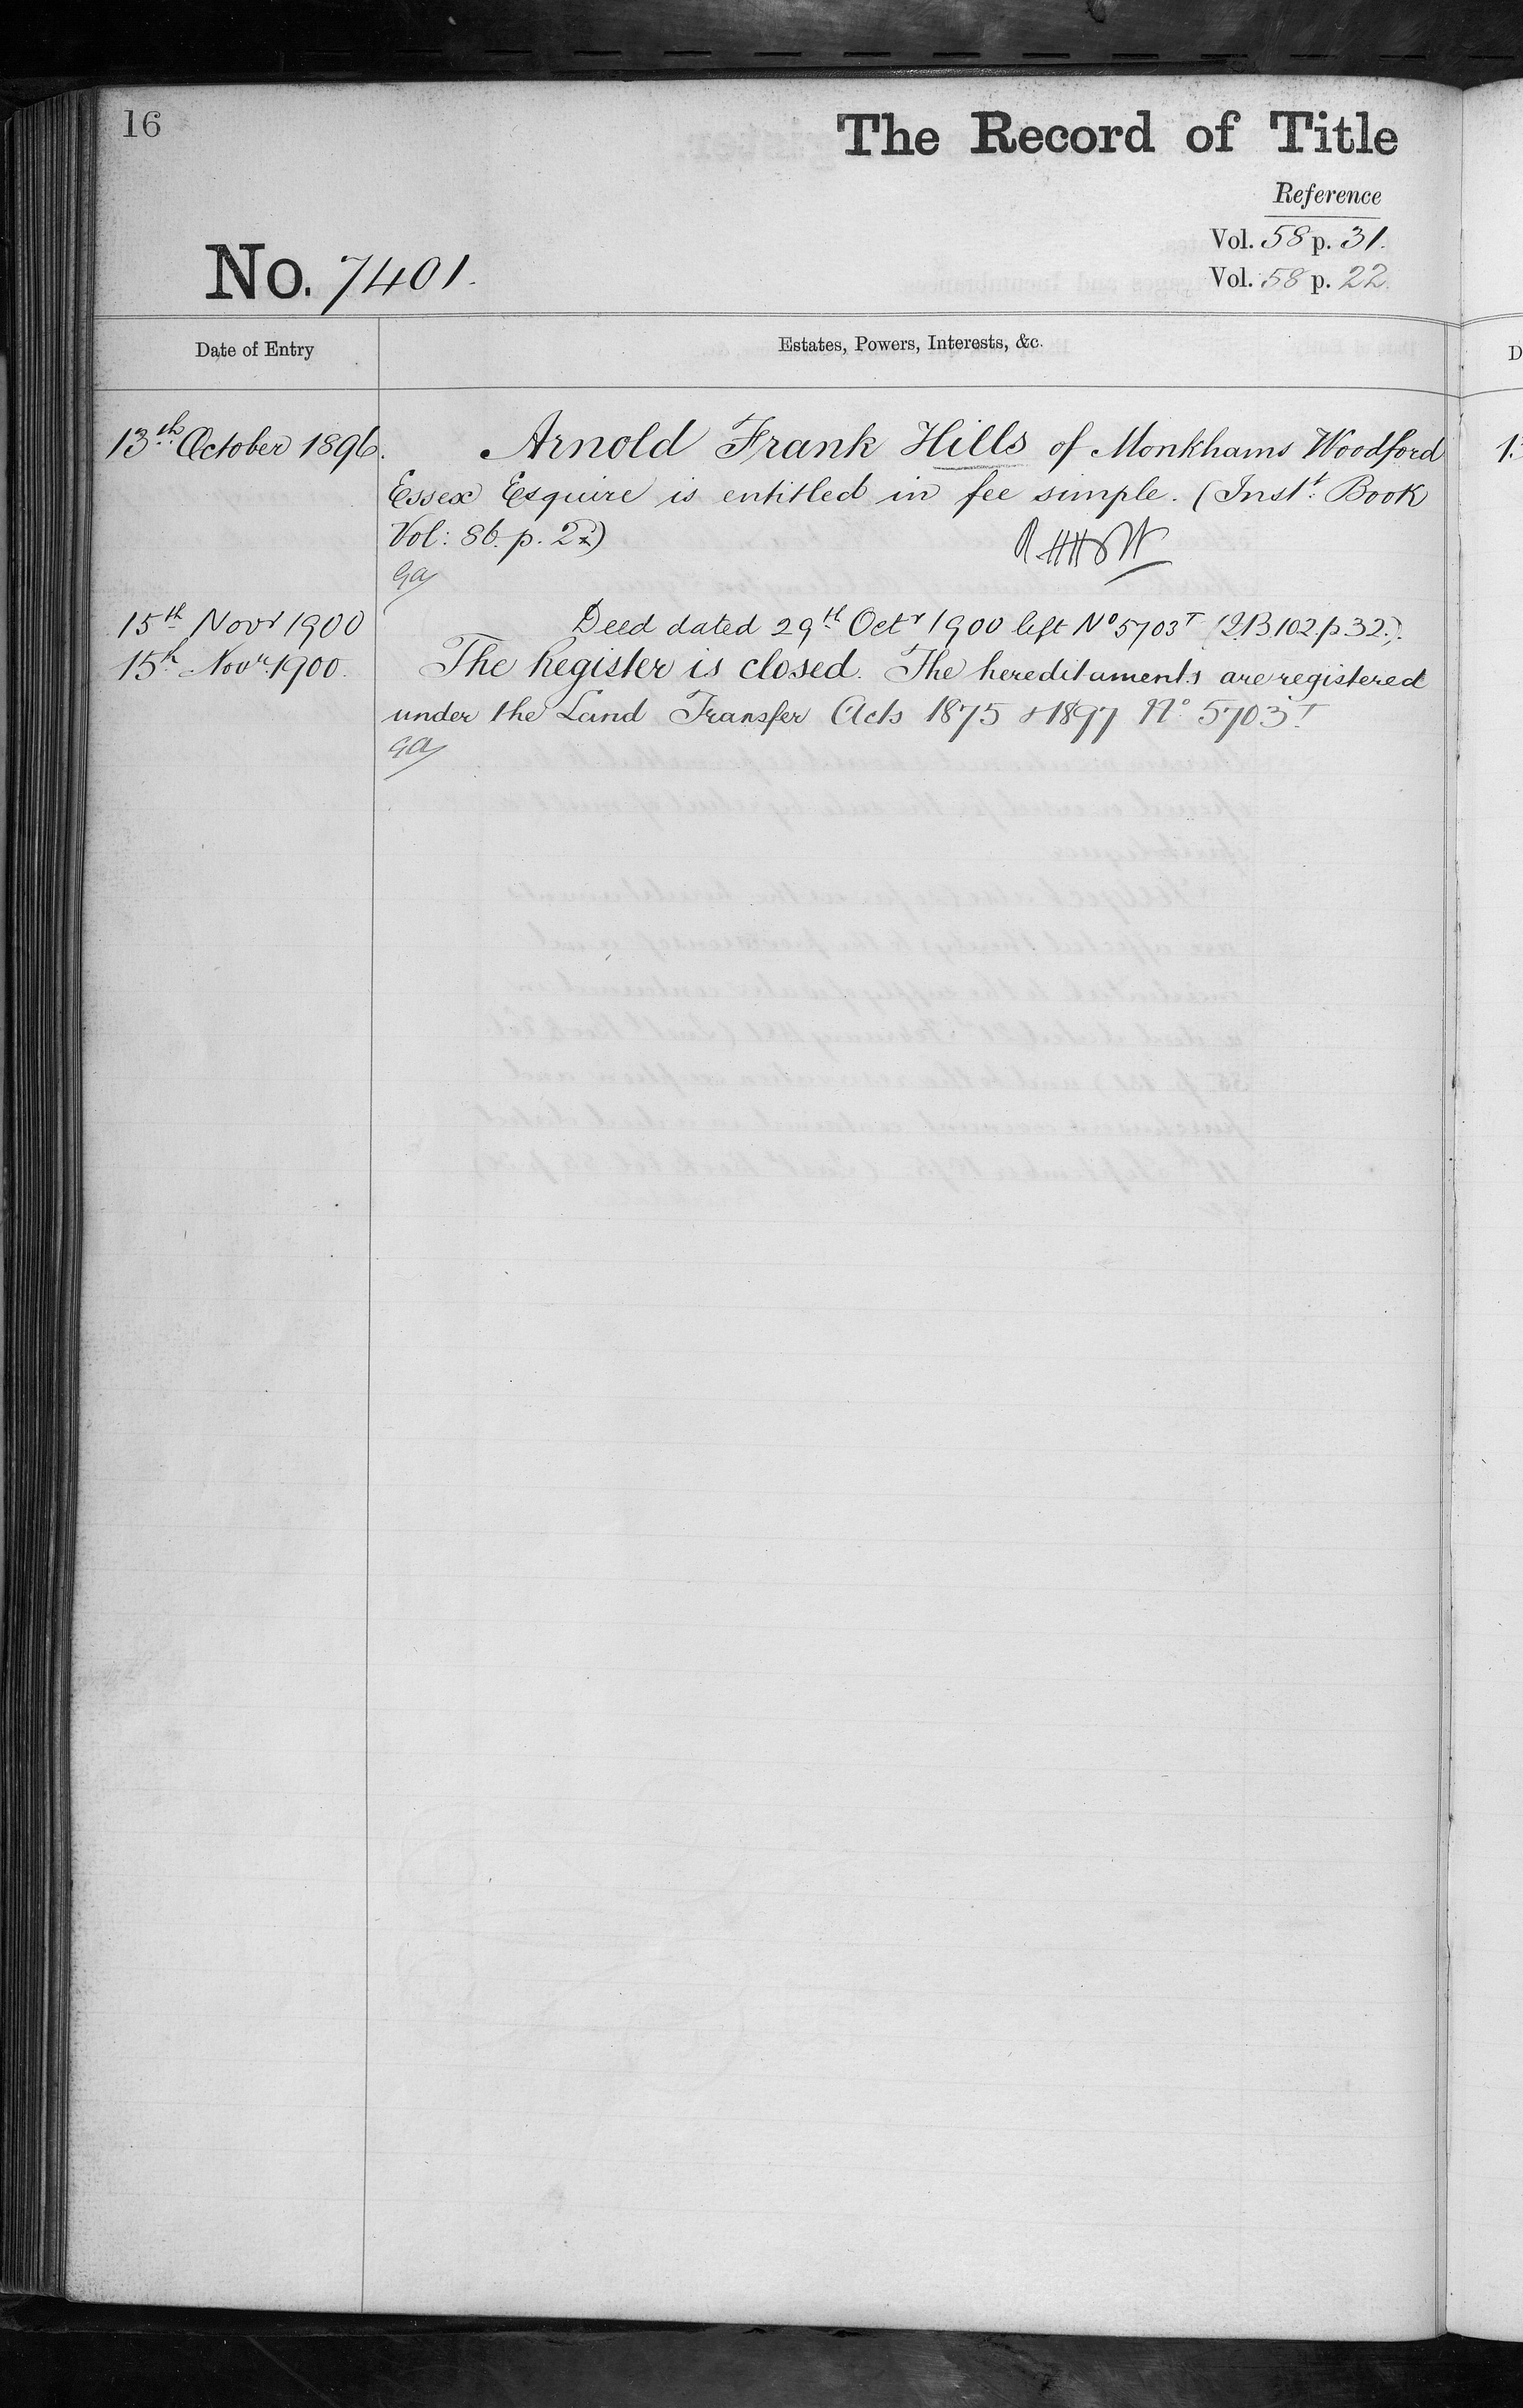 16
The Record of Title
Reference
Vol. 58 p. 31.
No. 7401.
Vol. 58 p. 22.
Date of Entry
Estates, Powers, Interests, &c.
13th October 1896.
Arnold Frank Hills of Monkhams Woodford
Essex Esquire is entitled in fee simple. (Instt. Book
Vol: 86. p.
GA
15th Novr 1900
Deed dated 29th Octr 1900 left No 5703T (2B 102. p 32.).
15th Novr 1900.
The Register is closed. The hereditaments are registered
under the Land Transfer Acts 1875 & 1897 No. 5703T
GA